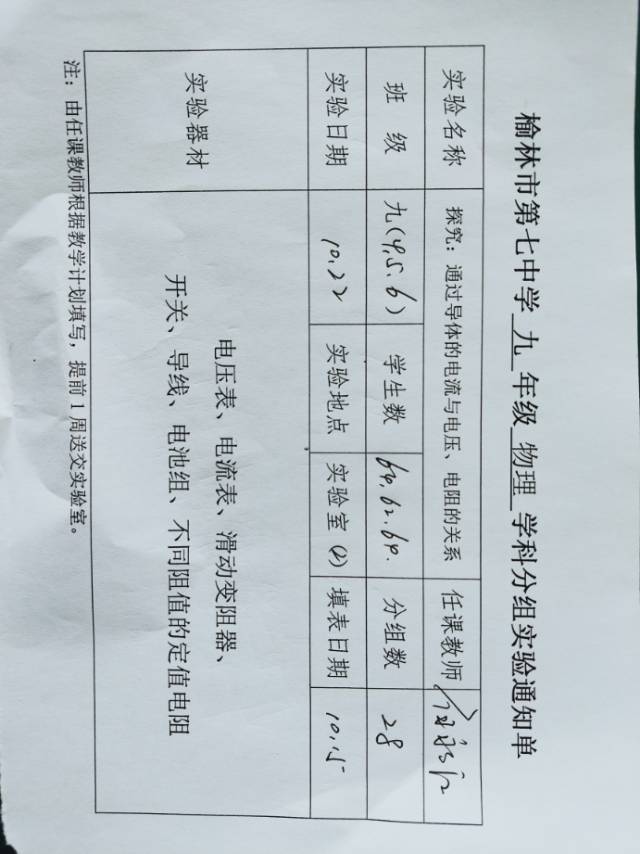 榆林市第七中学 九 年级 物理 学科分组实验通知单
实验名称 探究：通过导体的电流与电压、电阻的关系 任课教师
班 级 九(4.5.6) 学生数 64.62.64. 分组数 28
实验日期 10.22 实验地点 实验室(2) 填表日期 10.15
实验器材 电压表、电流表、滑动变阻器、
开关、导线、电池组、不同阻值的定值电阻
注：由任课教师根据教学计划填写，提前1周送交实验室。